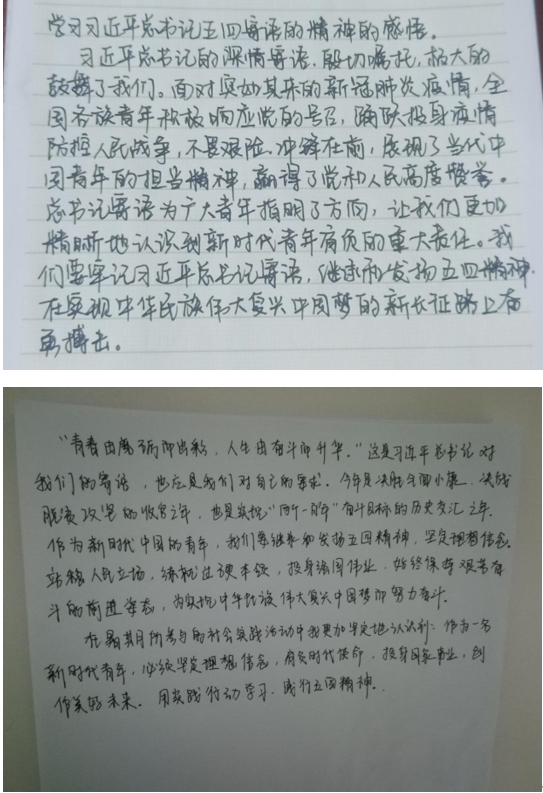 学习习近平总书记五四寄语的精神的感悟。
习近平总书记的深情寄语,殷切嘱托,极大的
鼓舞了我们。面对突如其来的新冠肺炎疫情,全
国各族青年积极响应党的号召,踊跃投身疫情
防控人民战争,不畏艰险、冲锋在前,展现了当代中
国青年的担当精神,赢得了党和人民高度赞誉。
总书记寄语为广大青年指明了方向,让我们更加
清晰地认识到新时代青年肩负的重大责任。我
们要牢记习近平总书记寄语,继承和发扬五四精神,
在实现中华民族伟大复兴中国梦的新长征路上奋
勇搏击。
“青春由磨砺而出彩,人生由奋斗而升华。”这是习近平总书记对
我们的寄语,也应是我们对自己的要求。今年是决胜全面小康、决战
脱贫攻坚的收官之年,也是实现“两个一百年”奋斗目标的历史交汇之年。
作为新时代中国的青年,我们要继承和发扬五四精神,坚定理想信念,
站稳人民立场,练就过硬本领,投身强国伟业,始终保持艰苦奋
斗的前进姿态,为实现中华民族伟大复兴中国梦而努力奋斗。
在暑期所参与的社会实践活动中我更加坚定地认识到:作为一名
新时代青年,必须坚定理想信念,肩负时代使命,投身国家事业,创
作美好未来。用实践行动学习、践行五四精神。